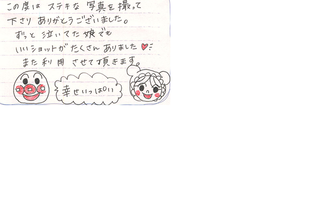 この度は ステキな 写真を 撮って
下さり ありがとうございました。
ずっと 泣いてた 娘でも
いいショットが たくさん ありました♥
また 利用 させて 頂きます。
幸せいっぱい